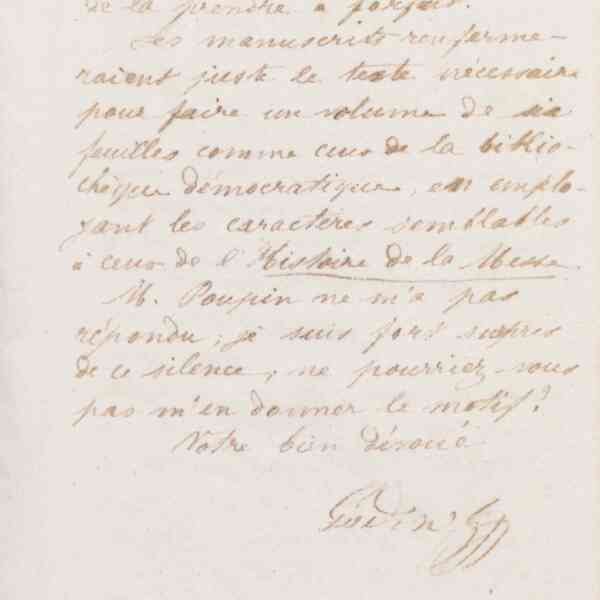 de la prendre à forfait.
Les manuscrits renferme-
raient juste le texte nécessaire
pour faire un volume de six
feuilles comme ceux de la biblio-
thèque démocratique, en emplo-
yant les caractères semblables
à ceux de l'Histoire de la Messe
M. Poupin ne m'a pas
répondu; je suis fort surpris
de ce silence, ne pourriez-vous
pas m'en donner le motif?
Votre bien dévoué
Godin